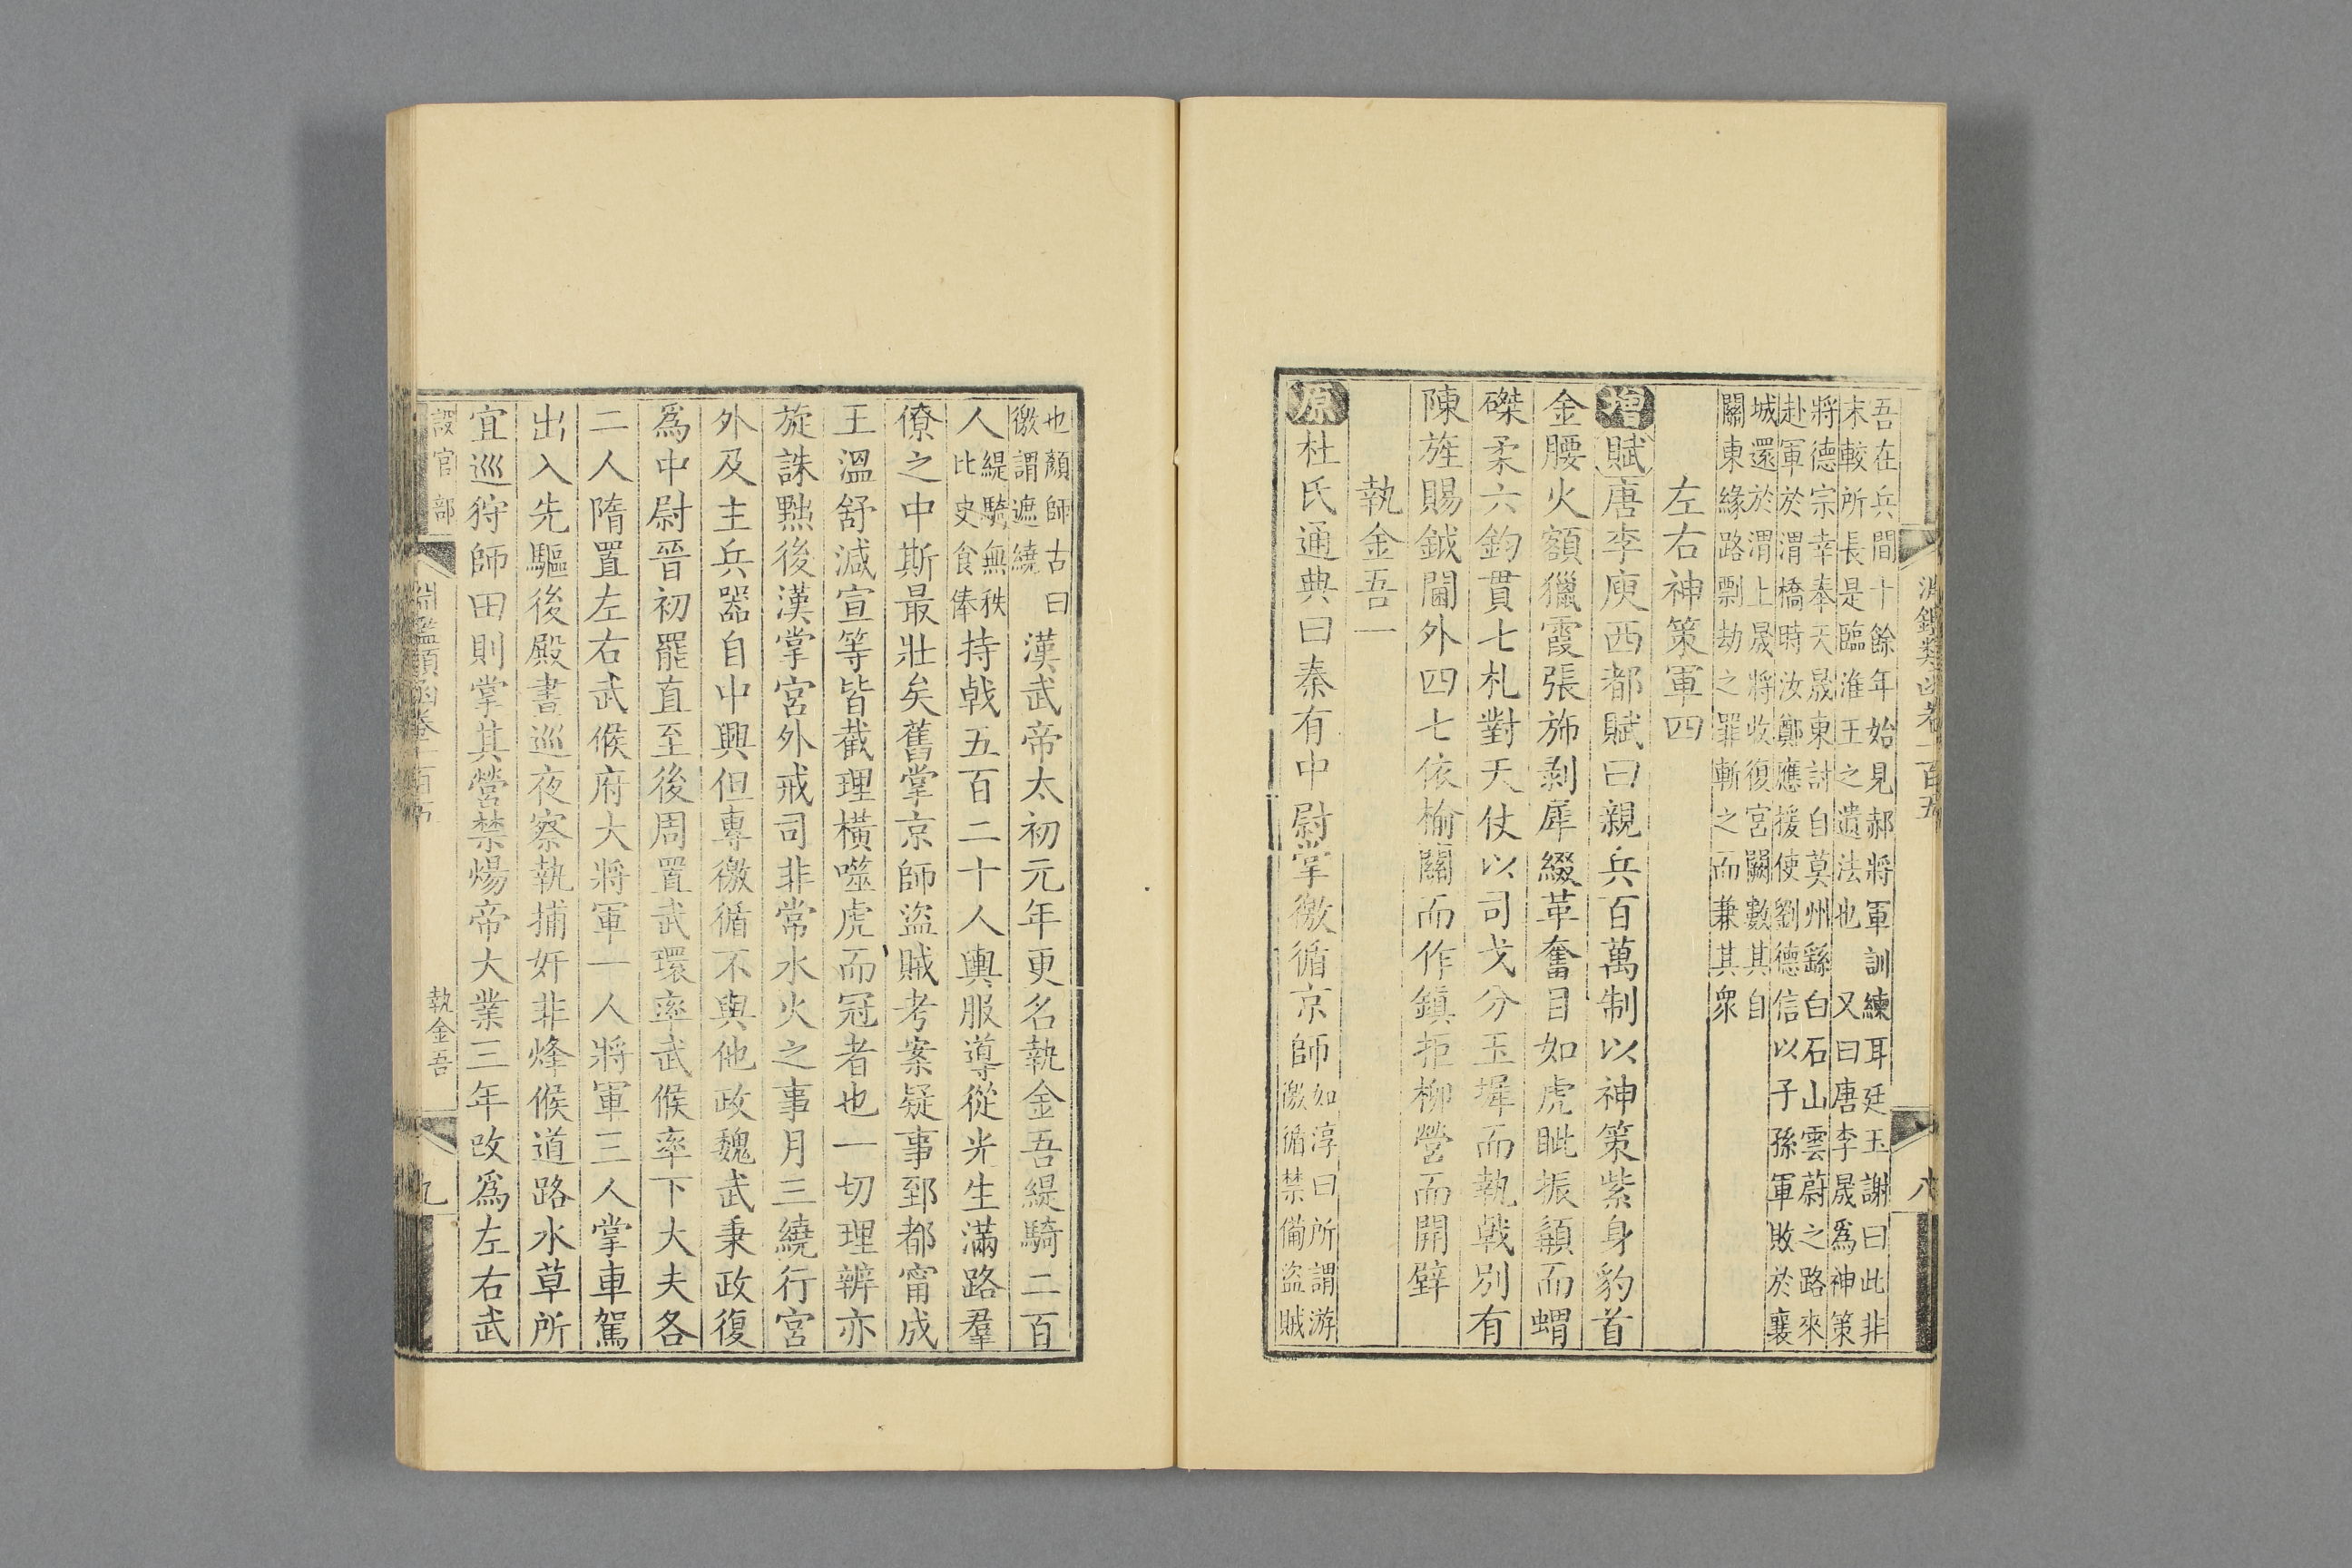 淵鑑類函卷一百五
八
吾在兵間十餘年始見郝將軍訓練耳廷玉謝曰此非
末較所長是臨淮王之遺法也 又曰唐李晟爲神策
將德宗幸奉天晟東討自莫州繇白石山雲蔚之路來
赴軍於渭橋時汝鄭應援使劉德信以子孫軍敗於襄
城還於渭上晟將收復宮闕數其自
關東緣路剽劫之罪斬之而兼其衆
左右神策軍四
增賦唐李庾西都賦曰親兵百萬制以神策紫身豹首
金腰火額獵霞張斾剥犀綴革奮目如虎眦振顙而蝟
磔柔六鈞貫七札對天仗以司戈分玉墀而執戟別有
陳旌賜鉞閫外四七依榆關而作鎮拒柳營而開壁
執金吾一
原杜氏通典曰秦有中尉掌徼循京師
如淳曰所謂游
徼循禁備盜賊
也顏師古曰
徼謂遮繞
漢武帝太初元年更名執金吾緹騎二百
人
緹騎無秩
比吏食俸
持戟五百二十人輿服導從光生滿路羣
僚之中斯最壯矣舊掌京師盜賊考案疑事郅都甯成
王溫舒減宣等皆截理橫噬虎而冠者也一切理辨亦
旋誅黜後漢掌宮外戒司非常水火之事月三繞行宮
外及主兵器自中興但專徼循不與他政魏武秉政復
爲中尉晉初罷直至後周置武環率武候率下大夫各
二人隋置左右武候府大將軍一人將軍三人掌車駕
出入先驅後殿晝巡夜察執捕奸非烽候道路水草所
宜巡狩師田則掌其營禁煬帝大業三年改爲左右武
設官部
淵鑑類函卷一百五
執金吾
九